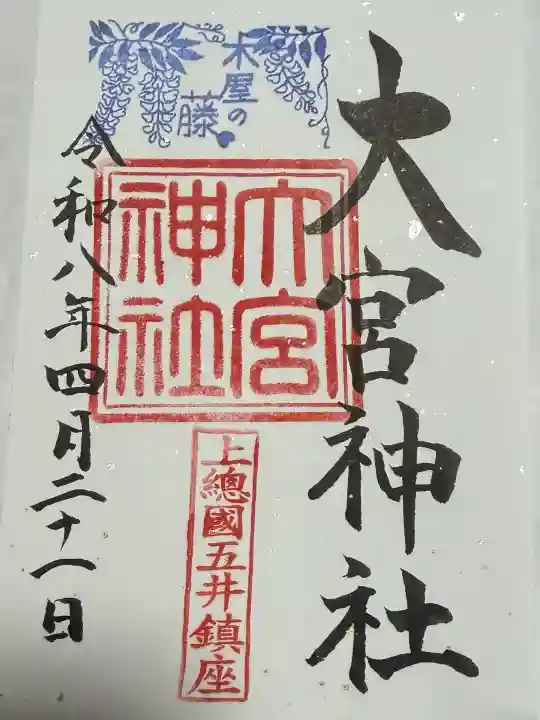 大宮神社
木屋の
藤
大宮
神社
上總國五井鎮座
令和八年四月二十一日